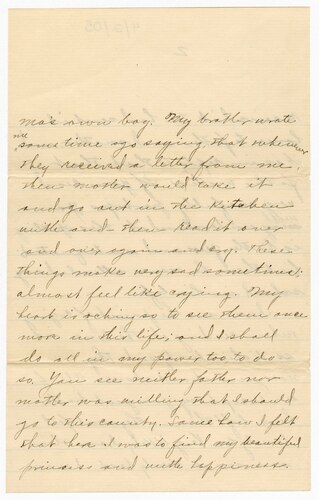 ma's own boy. My brother wrote
me some time ago saying that whenever
they received a letter from me,
then mother would take it
and go out in the kitchen
with and then read it over
and over again and cry. These
things make very sad sometimes;
almost feel like crying. My
heart is aching so to see them once
more in this life; and I shall
do all in my power too, to do
so. You see neither father nor
mother was willing that I should
go to this county. Some how I felt
that here I was to find my beautiful
princess and with happiness.